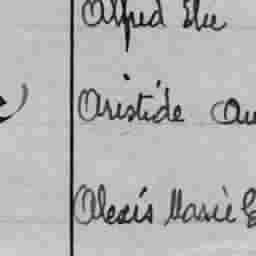 Alfred Elie
Aristide Au
Alexis Marie E